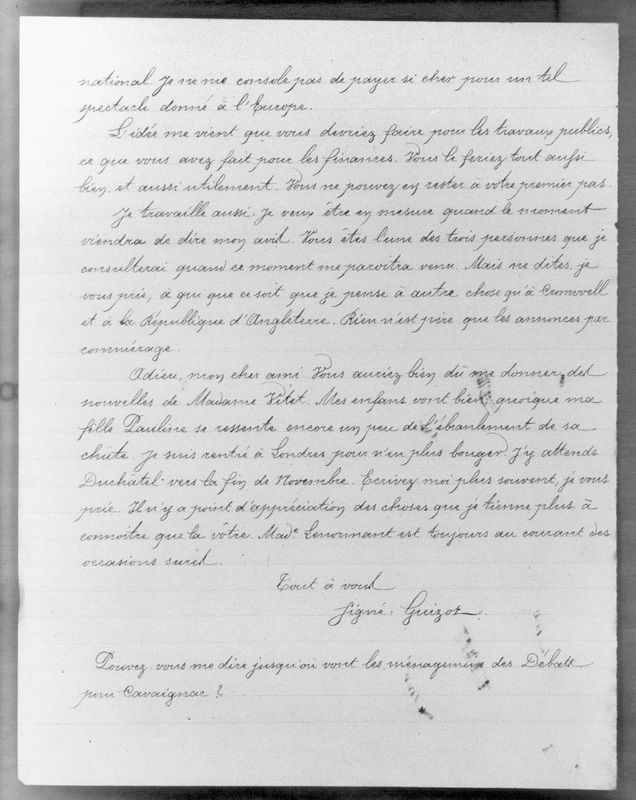 national. Je ne me console pas de payer si cher pour un tel
spectacle donné à l'Europe.
L'idée me vient que vous devriez faire pour les travaux publics,
ce que vous avez fait pour les finances. Vous le feriez tout aussi
bien et aussi utilement. Vous ne pouvez en rester à votre premier pas.
Je travaille aussi. Je veux être en mesure quand le moment
viendra de dire mon avis. Vous êtes l'une des trois personnes que je
consulterai quand ce moment me paroitra venu. Mais ne dites, je
vous prie, à qui que ce soit que je pense à autre chose qu'à Cromwell
et à la République d'Angleterre. Rien n'est pire que les annonces par
commérage.
Adieu, mon cher ami. Vous auriez bien dû me donner des
nouvelles de Madame Vitet. Mes enfans vont bien, quoique ma
fille Pauline se ressente encore un peu de l'ébranlement de sa
chûte. Je suis rentré à Londres pour n'en plus bouger. J'y attends
Duchâtel vers la fin de Novembre. Ecrivez moi plus souvent, je vous
prie. Il n'y a point d'appréciation des choses que je tienne plus à
connoître que la vôtre. Made Lenormant est toujours au courant des
occasions sures.
Tout à vous
Signé: Guizot.
Pouvez vous me dire jusqu'où vont les ménagemens des Débats
pour Cavaignac?